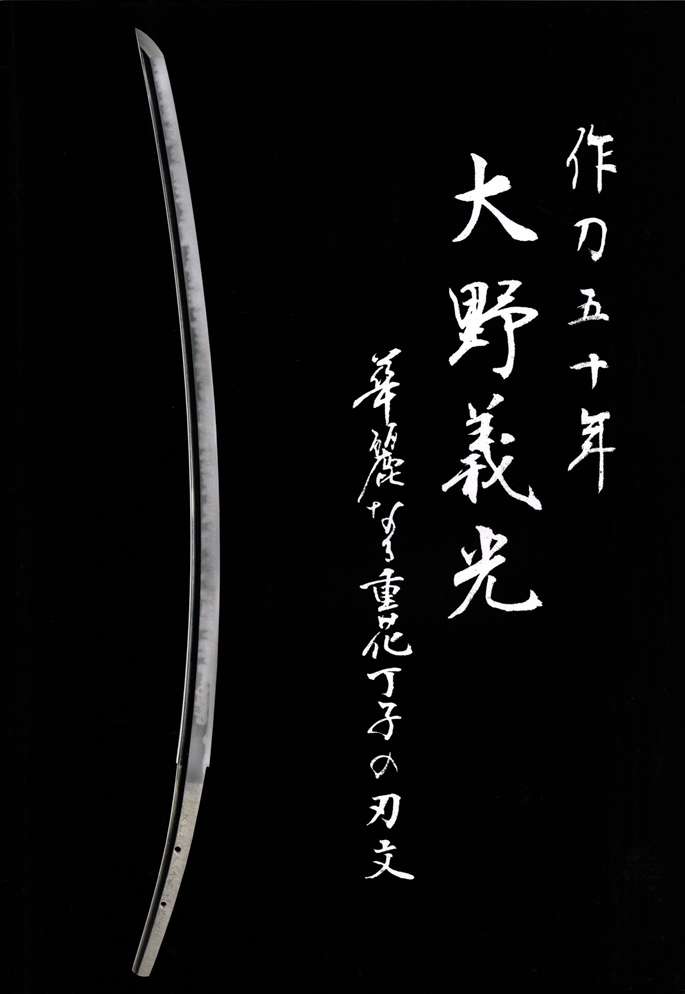 作刀五十年
大野義光
華麗なる重花丁子の刃文